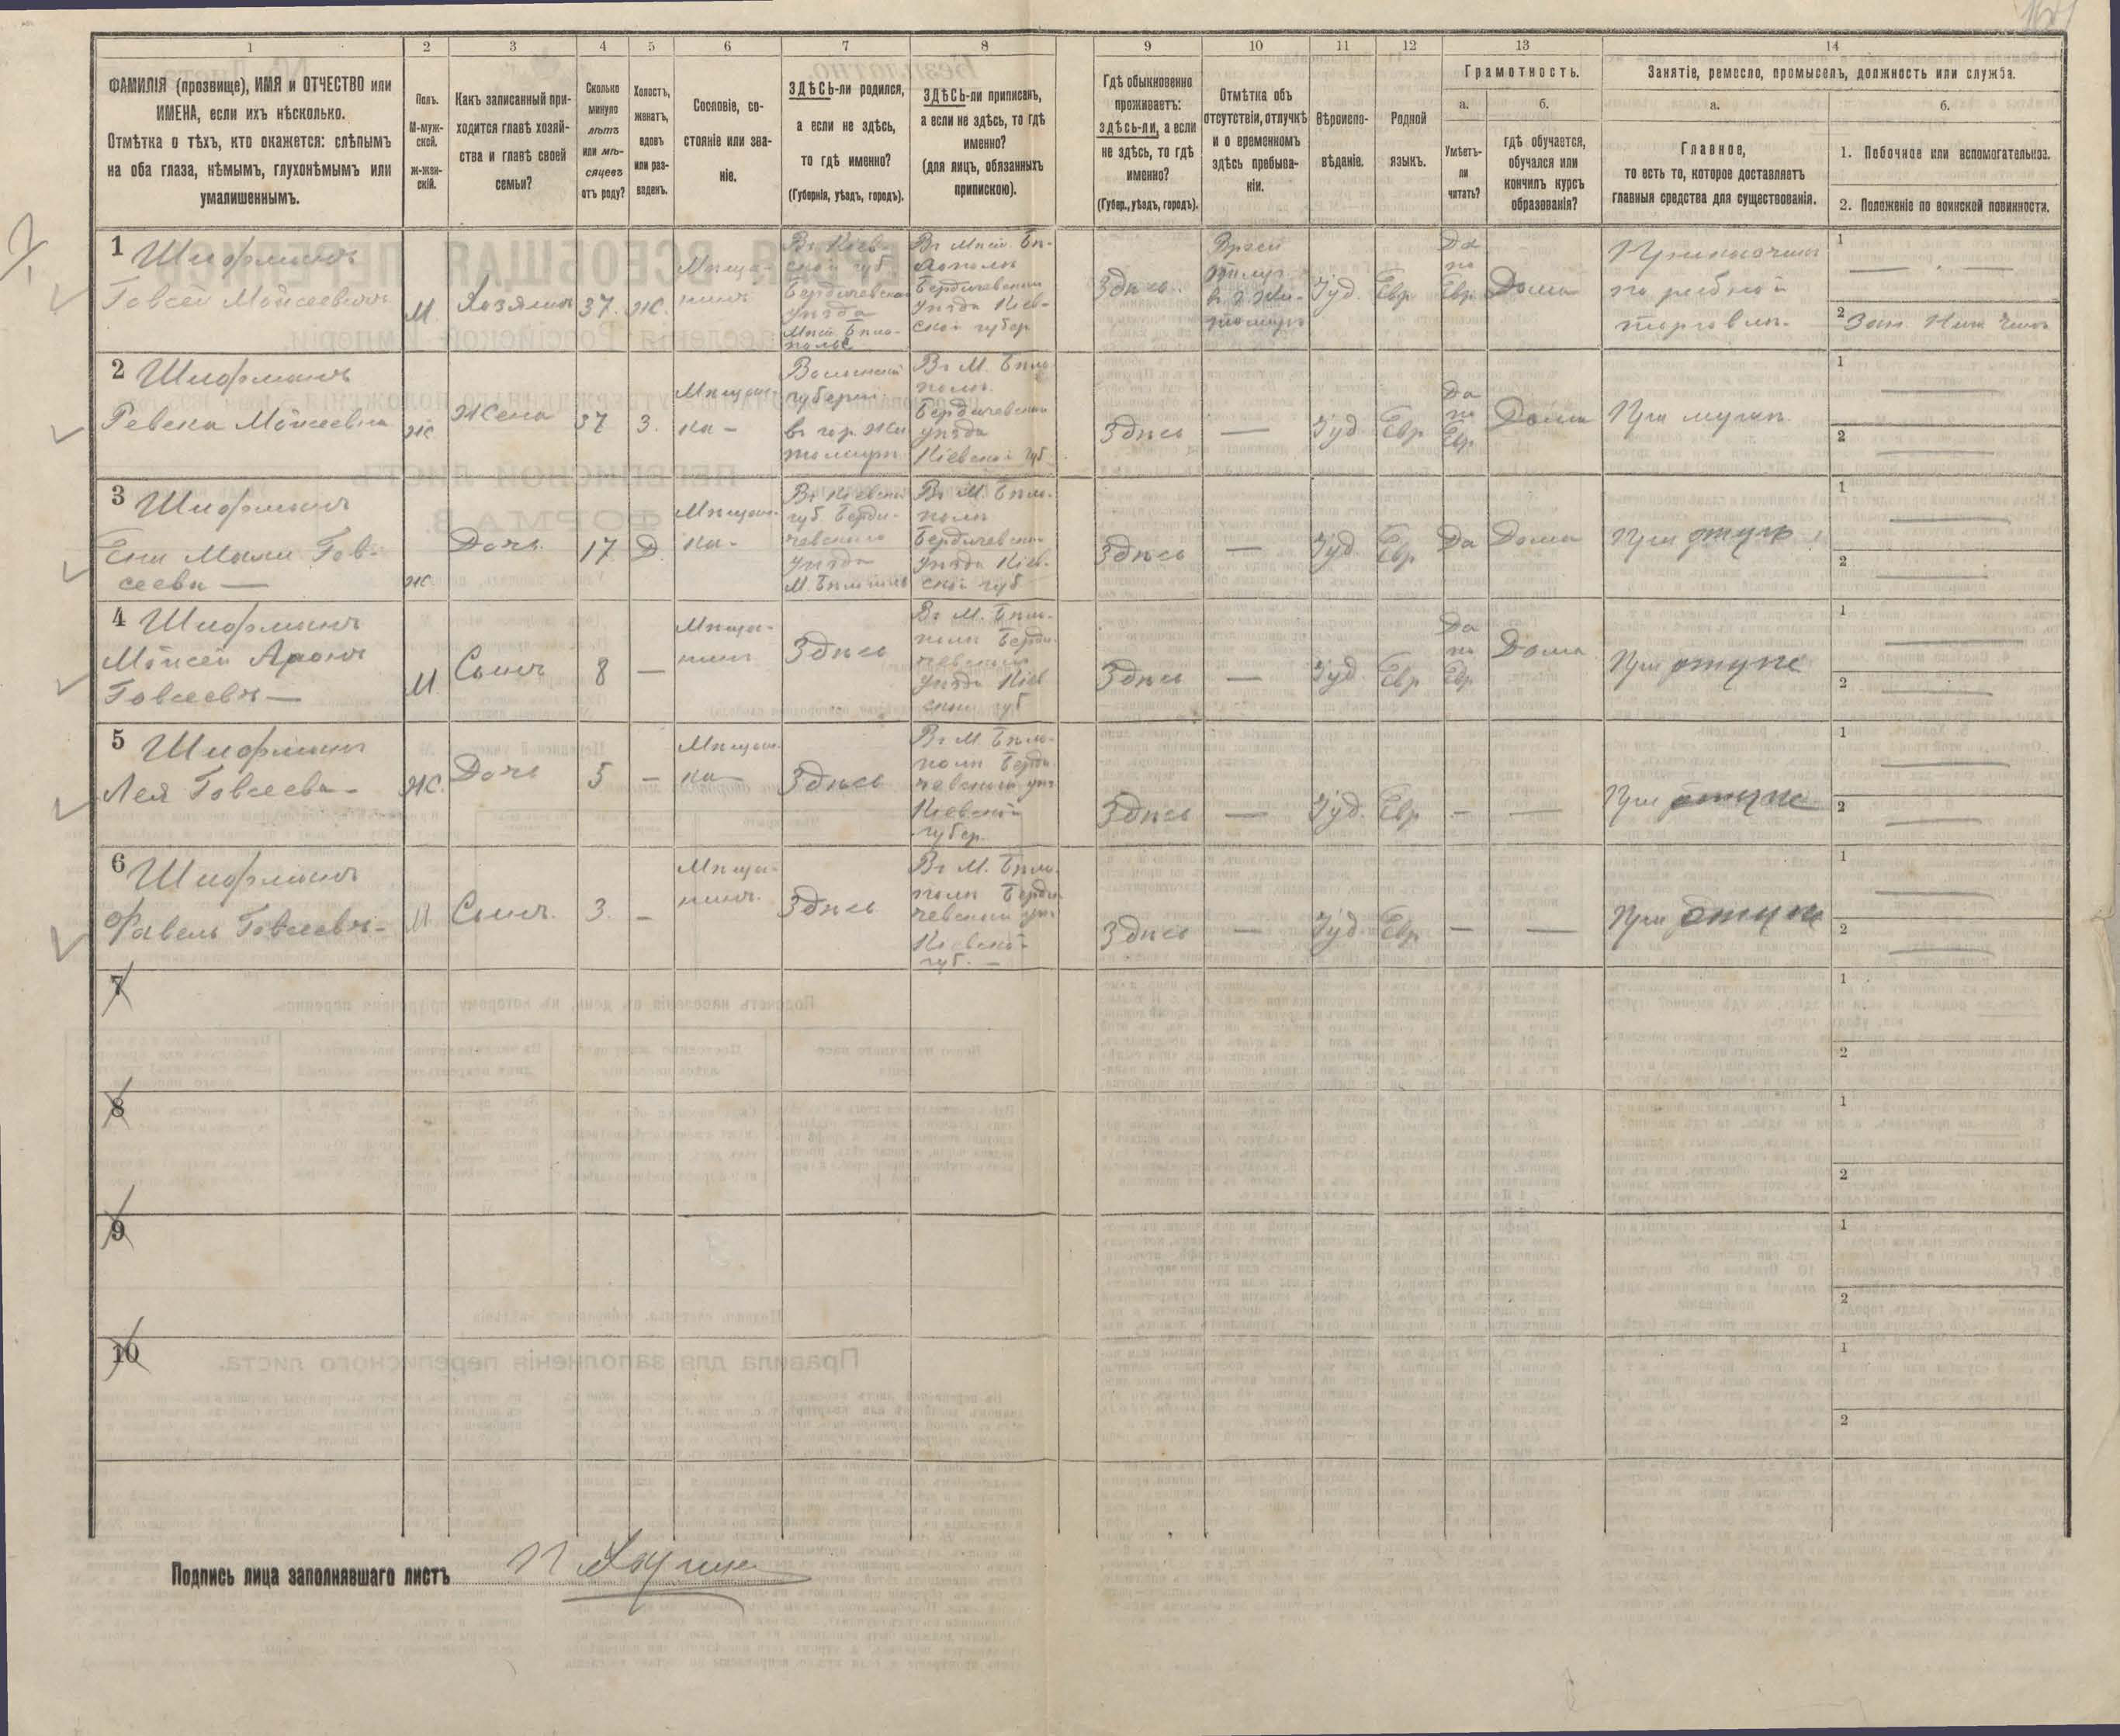 1
2
3
4
5
6
7
8
9
10
11
12
13
14
ФАМИЛІЯ (прозвище), ИМЯ и ОТЧЕСТВО или
ИМЕНА, если ихъ нѣсколько.
Отмѣтка о тѣхъ, кто окажется: слѣпымъ
на оба глаза, нѣмымъ, глухонѣмымъ или
умалишеннымъ.
Полъ.
М-муж-
ской.
ж-жен-
скій.
Какъ записанный при-
ходится главѣ хозяй-
ства и главѣ своей
семьи?
Сколько
минуло
лѣтъ
или мѣ-
сяцевъ
отъ роду?
Холостъ,
женатъ,
вдовъ
или раз-
веденъ.
Сословіе, со-
стояніе или зва-
ніе.
ЗДѢСЬ-ли родился,
а если не здѣсь,
то гдѣ именно?
(Губернія, уѣздъ, городъ).
ЗДѢСЬ-ли приписанъ,
а если не здѣсь, то гдѣ
именно?
(для лицъ, обязанныхъ
припискою).
Гдѣ обыкновенно
проживаетъ:
здѣсь-ли, а если
не здѣсь, то гдѣ
именно?
(Губер., уѣздъ, городъ).
Отмѣтка объ
отсутствіи, отлучкѣ
и о временномъ
здѣсь пребыва-
ніи.
Вѣроиспо-
вѣданіе.
Родной
языкъ.
Грамотность.
а.
Умѣетъ-
ли
читать?
б.
гдѣ обучается,
обучался или
кончилъ курсъ
образованія?
Занятіе, ремесло, промыселъ, должность или служба.
а.
Главное,
то есть то, которое доставляетъ
главныя средства для существованія.
б.
1. Побочное или вспомогательное.
2. Положеніе по воинской повинности.
1 Шифманъ
Говсей Мойсеевичъ
М.
Хозяинъ
37.
Ж.
Мѣща-
нинъ
Въ Кіев-
ской губ
Бердичевскаго
уѣзда
Мѣст. Бѣло-
полье
Въ Мѣст. Бѣ-
лополи
Бердичевскаго
уѣзда Кіев-
ской губер
Здѣсь
въ г. Жи-
томирѣ
Іуд.
Евр
Да
по
Евр
Дома
по рыбной
торговли
1
2
2 Шифманъ
Ревека Мойсеевна
Ж
Жена
37
З.
Мѣщан-
ка
Волынской
губерніи
въ гор. Жи
томирѣ
Въ М. Бѣло
поли
Бердичевскаго
уѣзда
Кіевской губ
Здѣсь
Іуд
Евр
Да
по
Евр
Дома
При мужѣ
1
2
3 Шифманъ
Ени Мали Гов-
сеева
Ж
Дочь
17
Д.
Мѣщан-
ка
Въ Кіевской
губ Берди-
чевскаго
уѣзда
М. Бѣлополь
Въ М. Бѣло-
поли
Бердичевскаго
уѣзда Кіев-
ской губ
Здѣсь
Іуд
Евр
Да
Дома
При отцѣ
1
2
4 Шифманъ
Мойсей Аронъ
Говсеевъ
М
Сынъ
8
Мѣща-
нинъ
Здѣсь
Въ М. Бѣло-
поли Берди-
чевскаго
уѣзда Кіев
ской губ
Здѣсь
Іуд.
Евр
Да
по
Евр
Дома
При отцѣ
1
2
5 Шифманъ
Лея Говсеева
Ж.
Дочь
5
Мѣщан-
ка
Здѣсь
Въ М. Бѣло-
поли Берди
чевскаго уѣз
Кіевской
губер.
Здѣсь
Іуд.
Евр
При отцѣ
1
2
6 Шифманъ
Фавель Говсеевъ
М
Сынъ.
3.
Мѣща-
нинъ.
Здѣсь
Въ М. Бѣло-
поли Берди
чевскаго уѣз
Кіевской
губ.
Здѣсь
Іуд.
Евр
При отцѣ
1
2
7
1
2
8
1
2
9
1
2
10
1
2
Подпись лица заполнявшаго листъ